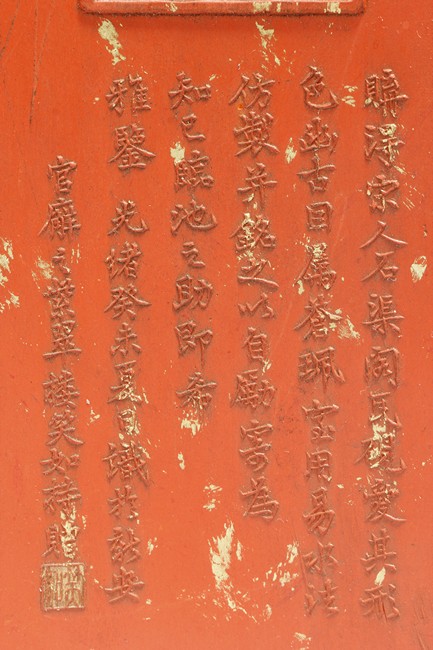 購得宋人石渠阁瓦硯愛其形
色幽古因属蒼珮室用易水法
仿製并銘之以自勵寄為
知己臨池之助即希
雅鑒 光緒癸未夏日識於新安
官廨之翠 如持贈